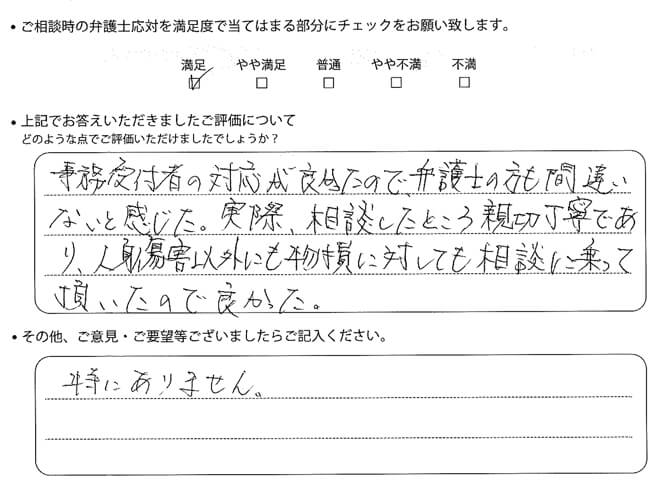 • ご相談時の弁護士応対を満足度で当てはまる部分にチェックをお願い致します。
満足 やや満足 普通 やや不満 不満
☑ □ □ □ □
• 上記でお答えいただきましたご評価について
どのような点でご評価いただけましたでしょうか？
事務受付者の対応が良かたので、弁護士の方も間違い
ないと感じた。実際、相談したところ親切丁寧であ
り、人身傷害以外にも物損に対しても相談に乗って
頂いたので良かった。
• その他、ご意見・ご要望等ございましたらご記入ください。
特にありません。